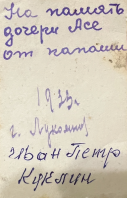 На память
дочери Асе
от папаши
1933г.
г. Лукоянов
Иван Петр
Куклин